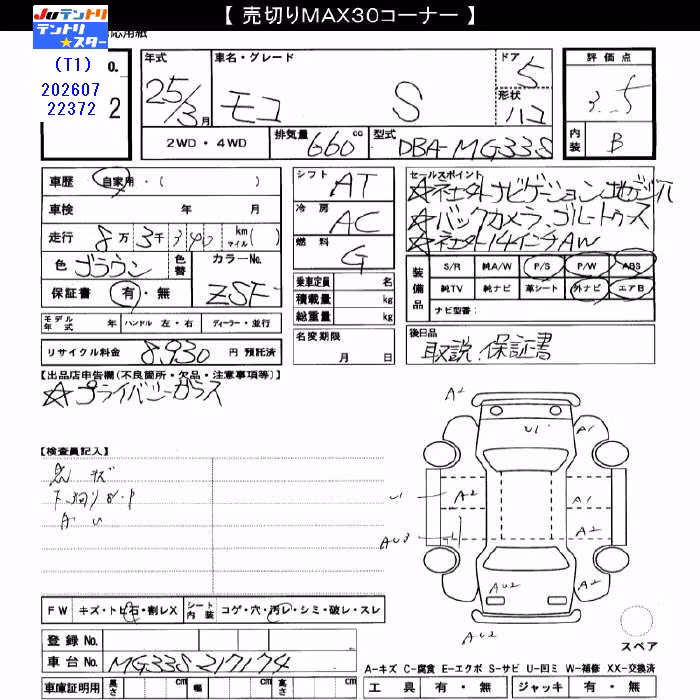 【 売切りMAX30コーナー 】
JUテントリ
テントリ★スター
応用紙
(T1)
202607
22372
o.
2
年式
25/3月
車名・グレード
モコ S
ドア
5
形状
ハコ
評価点
3.5
内装
B
2WD・4WD
排気量 660 cc
型式 DBA-MG33S
車歴 自家用・( )
車検 年 月
走行 8万3千340 km マイル( )
色 ブラウン 色替
カラーNo. ZSF
保証書 有・無
モデル年式 年 ハンドル 左・右 ディーラー・並行
リサイクル料金 8,930 円 預託済
シフト AT
冷房 AC
燃料 G
乗車定員 名
積載量 kg
総重量 kg
名変期限
月 日
セールスポイント
☆社外ナビゲーション地デジ
☆バックカメラ
☆社外14インチAW
装備品
S/R 純A/W P/S P/W ABS
純TV 純ナビ 革シート 外ナビ エアB
ナビ型番:
後日品
取説.保証書
【出品店申告欄(不良箇所・欠品・注意事項等)】
☆プライバシーガラス
【検査員記入】
A U
FW キズ・トビ石・割レX
シート内装 コゲ・穴・汚レ・シミ・破レ・スレ
登録No.
車台No. MG33S 217174
車庫証明用 長さ cm 幅 cm 高さ cm
A2
U1
A1
A2
A1
A2
AU2
AU2
スペア
A-キズ C-腐食 E-エクボ S-サビ U-凹ミ W-補修 XX-交換済
工具 有・無 ジャッキ 有・無